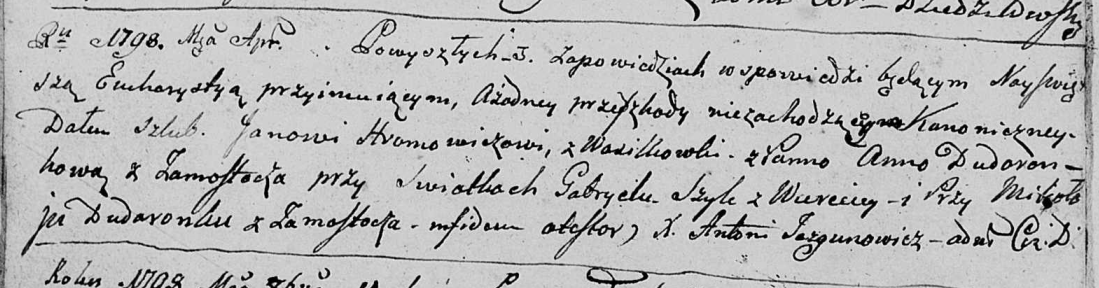 Dziedzilewsky
Ru 1798. Mca Apr. . Powyszłych 3. Zapowiedziach w spowiedzi będącym Nayswięt
szą Eucharystyą przyimuiącym, Ażadney przeszkody niezachodzącym Kanoniczney.
Dałem szlub. Janowi Hromowiczowi, z Wasilkowki. z Panno Anno Dudaron-
kową z Zamostocza przy swiatkach Gabryelu Szyle z Wiereiey - i Przy Mikoła
ju Dudaronku z Zamostocza - in fidem atestor) X. Antoni Jazgunowicz - adm Cer: D:
Roku 1798